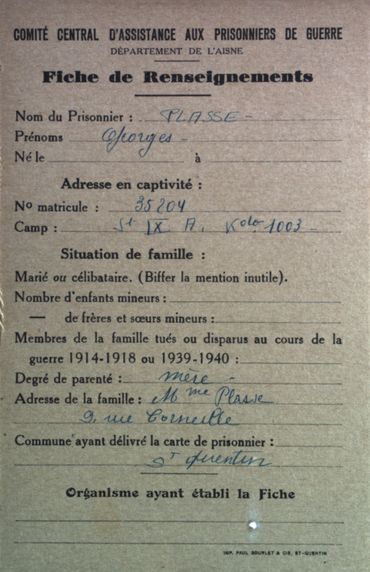 COMITÉ CENTRAL D'ASSISTANCE AUX PRISONNIERS DE GUERRE
DÉPARTEMENT DE L'AISNE
Fiche de Renseignements
Nom du Prisonnier : PLASSE -
Prénoms Georges -
Né le à
Adresse en captivité :
No matricule : 35204
Camp : St IX A. Kdo 1003
Situation de famille :
Marié ou célibataire. (Biffer la mention inutile).
Nombre d'enfants mineurs :
— de frères et sœurs mineurs :
Membres de la famille tués ou disparus au cours de la
guerre 1914-1918 ou 1939-1940 :
Degré de parenté : mère -
Adresse de la famille : Mme Plasse
9, rue Corneille
Commune ayant délivré la carte de prisonnier :
St Quentin
Organisme ayant établi la Fiche
IMP. PAUL BOURLET & CIE, ST-QUENTIN